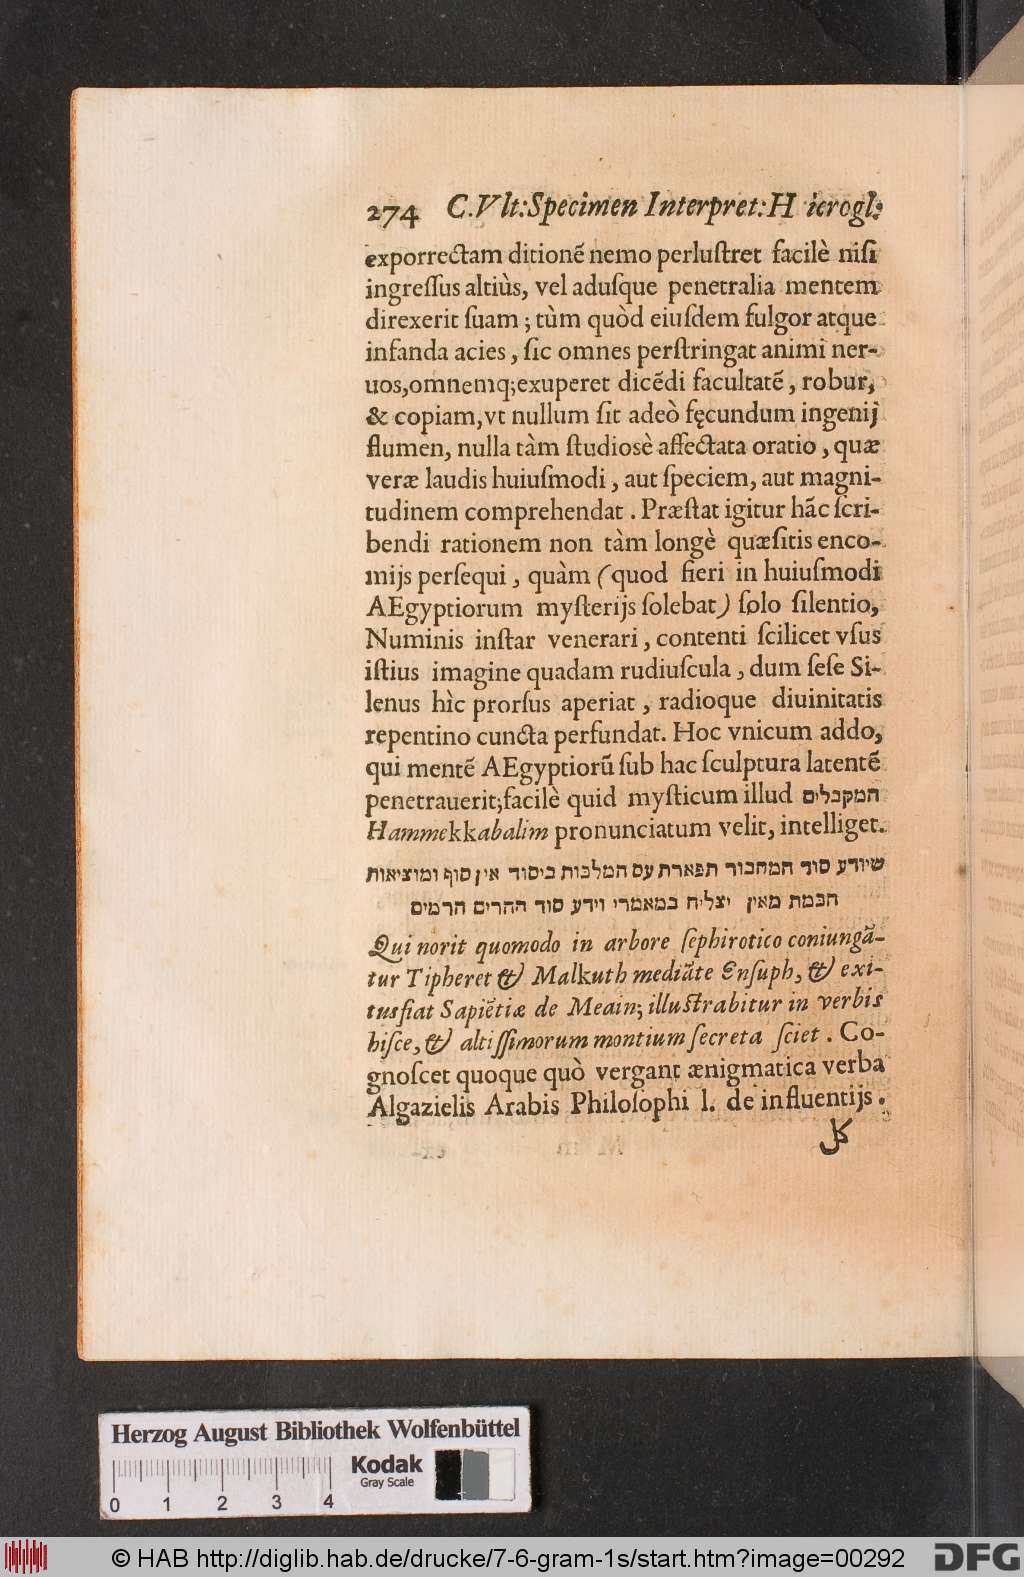 274 C.Vlt:Specimen Interpret:H ierogl:
exporrectam ditionẽ nemo perluſtret facilè niſi
ingreſſus altiùs, vel aduſque penetralia mentem
direxerit ſuam ; tùm quòd eiuſdem fulgor atque
infanda acies , ſic omnes perſtringat animi ner-
uos,omnemq;exuperet dicẽdi facultatẽ , robur,
& copiam,vt nullum ſit adeò fęcundum ingenij
flumen, nulla tàm ſtudiosè affectata oratio , quæ
veræ laudis huiuſmodi , aut ſpeciem, aut magni-
tudinem comprehendat . Præſtat igitur hãc ſcri-
bendi rationem non tàm longè quæſitis enco-
mijs perſequi , quàm (quod fieri in huiuſmodi
AEgyptiorum myſterijs ſolebat) ſolo ſilentio,
Numinis inſtar venerari , contenti ſcilicet vſus
iſtius imagine quadam rudiuſcula , dum ſeſe Si-
lenus hìc prorſus aperiat , radioque diuinitatis
repentino cuncta perfundat. Hoc vnicum addo,
qui mentẽ AEgyptiorũ ſub hac ſculptura latentẽ
penetrauerit;facilè quid myſticum illud המקבלים
Hammekkabalim pronunciatum velit, intelliget.
שיודע סוד המחבור תפארת עם המלכות ביסוד אין סוף ומוציאות
חבמת מאין יצליח במאמרי וידע סוד ההרים הרמים
Qui norit quomodo in arbore ſephirotico coniungã-
tur Tipheret & Malkuth mediãte Enſuph, & exi-
tus fiat Sapiẽtiæ de Meain; illuſtrabitur in verbis
hiſce, & altiſſimorum montium ſecreta ſciet . Co-
gnoſcet quoque quò vergant ænigmatica verba
Algazielis Arabis Philoſophi l. de influentijs .
كل
Herzog August Bibliothek Wolfenbüttel
Kodak
Gray Scale
0 1 2 3 4
© HAB http://diglib.hab.de/drucke/7-6-gram-1s/start.htm?image=00292
DFG